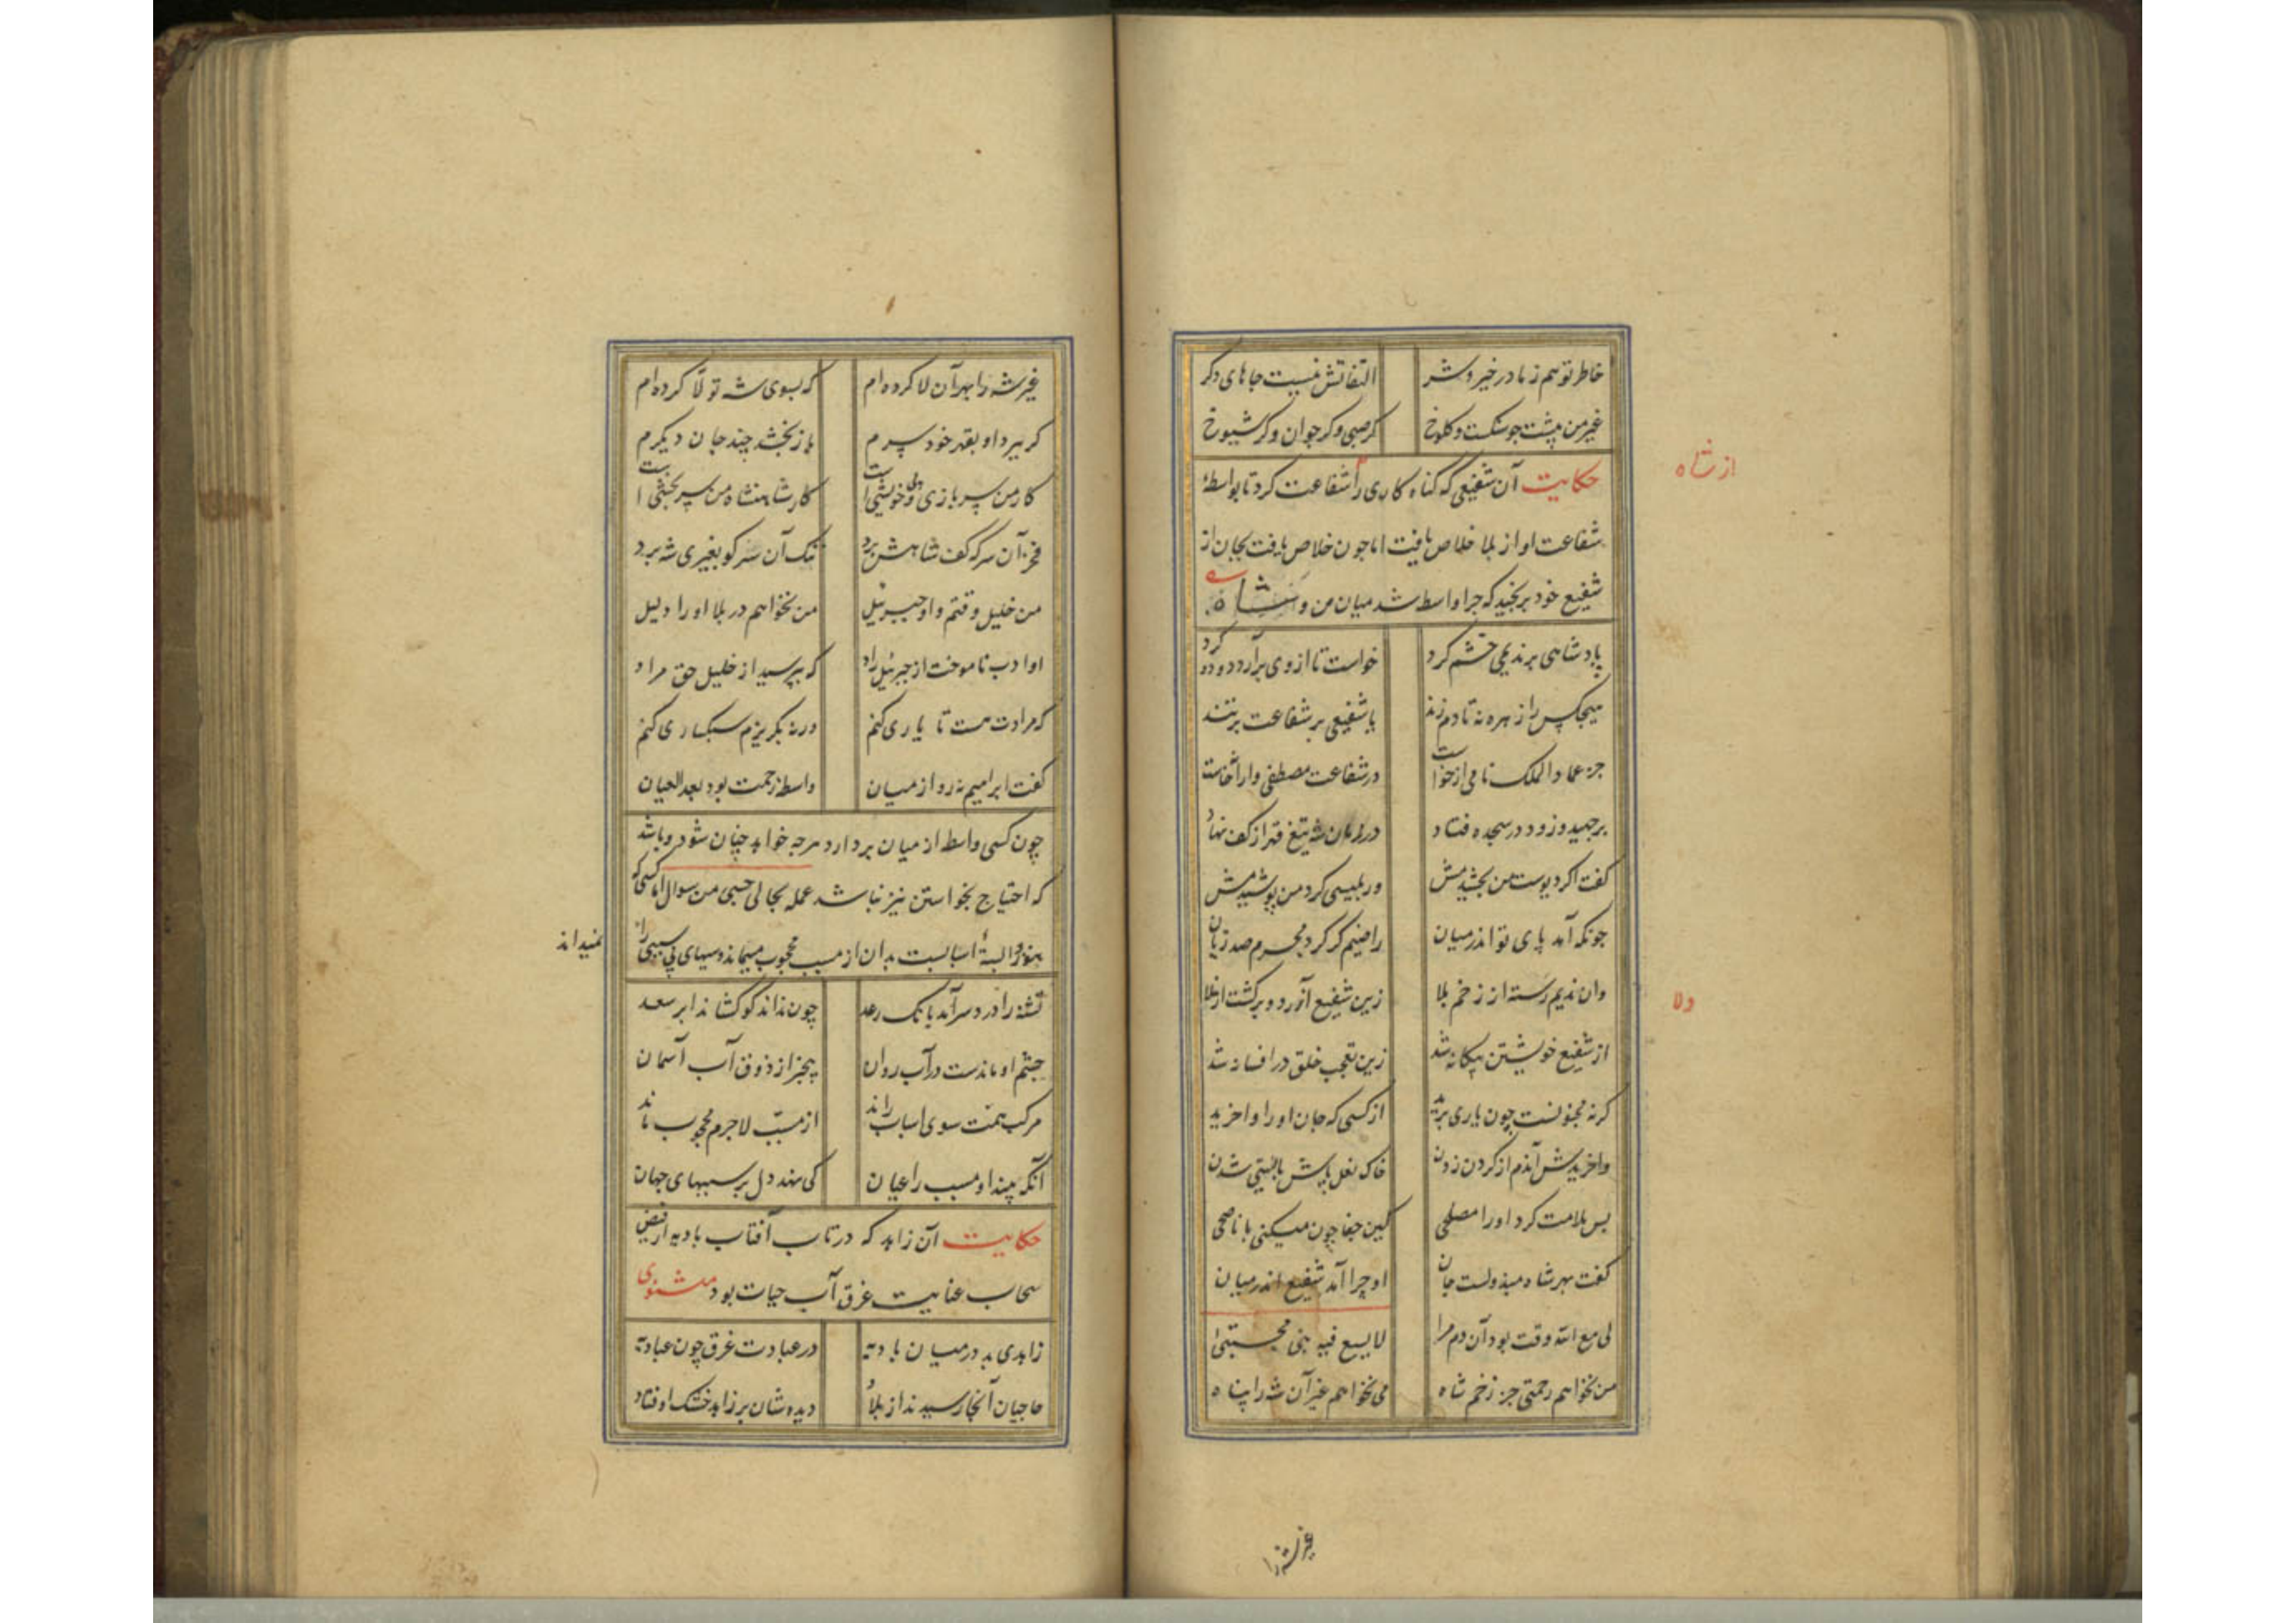 خاطر تو هم ز ما در خیر و شر التفاتش نیست جاهای دکر
غیر من پیشت جو سنکست و کلوخ کر صبی و کر جوان و کر شیوخ
حکایت آن شفیعی که کناه کاری را شفاعت کرد تا بواسطهٔ
از شاه
شفاعت او از بلا خلاص یافت اما جون خلاص یافت بجان از
شفیع خود برنجید که جرا واسطه شد میان من و شاه
پادشاهی بر ندیمی خشم کرد خواست تا از وی برآرد دود و کرد
هیچکس را زهره نه تا دم زند یا شفیعی بر شفاعت بر تند
جز عماد الملک نامی از خواست در شفاعت مصطفی وارانه خاست
برجهید و زود در سجده فتاد در زمان شه تیغ قهر از کف نهاد
کفت اکر دیوست من بخشیدمش ور بلیسی کرد من پوشیدمش
جونکه آمد پای تو اندر میان راضیم کر کرد مجرم صد زیان
وان ندیم رسته از زخم بلا زین شفیع آزرد و برکشت از ولا
ولا
از شفیع خویشتن بیکانه شد زین تعجب خلق در افسانه شد
کرنه مجنونست چون یاری برید از کسی که جان او را واخرید
واخریدش آندم از کردن زدن خاک نعل پاش بایستی شدن
بس ملامت کرد او را مصلحی کین جفا چون میکنی با ناصحی
کفت بهر شاه مبذولست جان او چرا آمد شفیع اندر میان
لی مع الله وقت بود آن دم مرا لا یسع فیه نبی مجتبی
من نخواهم رحمتی جز زخم شاه می نخواهم غیر آن شه را پناه
غیر شه را
غیر شه را بهر آن لا کرده ام که بسوی شه تولا کرده ام
کر ببرد او بقهر خود سرم باز بخشد چند جان دیکرم
کار من سربازی و بی خویشی است کار شاهنشاه من سربخشی است
فخر آن سر که کف شاهش برد ننک آن سر کو بغیری شه برد
من خلیل وقتم و او جبرئیل من نخواهم در بلا او را دلیل
او ادب ناموخت از جبرئیل راد که بپرسید از خلیل حق مراد
که مرادت هست تا یاری کنم ورنه بکریزم سبکباری کنم
کفت ابراهیم نه رو از میان واسطه زحمت بود بعد العیان
چون کسی واسطه از میان بردارد هرچه خواهد چنان شود و باشد
که احتیاج بخواستن نیز نباشد علمه بحالی حسبی من سوال اما کسی که
هنوز وابستهٔ اسبابست بدان از مسبب محجوب میماند و سببهای بی سببی را
نمیداند
تشنه را درد سر آمد بانک رعد چون نداند کو کشاند ابر سعد
چشم او ماندست در آب روان بیخبر از ذوق آب آسمان
مرکب همت سوی اسباب راند از مسبب لاجرم محجوب ماند
آنکه بیند او مسبب را عیان کی نهد دل بر سببهای جهان
حکایت آن زاهد که در تاب آفتاب بادیه از فیض
سحاب عنایت غرق آب حیات بود مثنوی
زاهدی بد در میان بادیه در عبادت غرق چون عبادیه
حاجیان آنجا رسیدند از بلاد دیده شان بر زاهد خشک اوفتاد